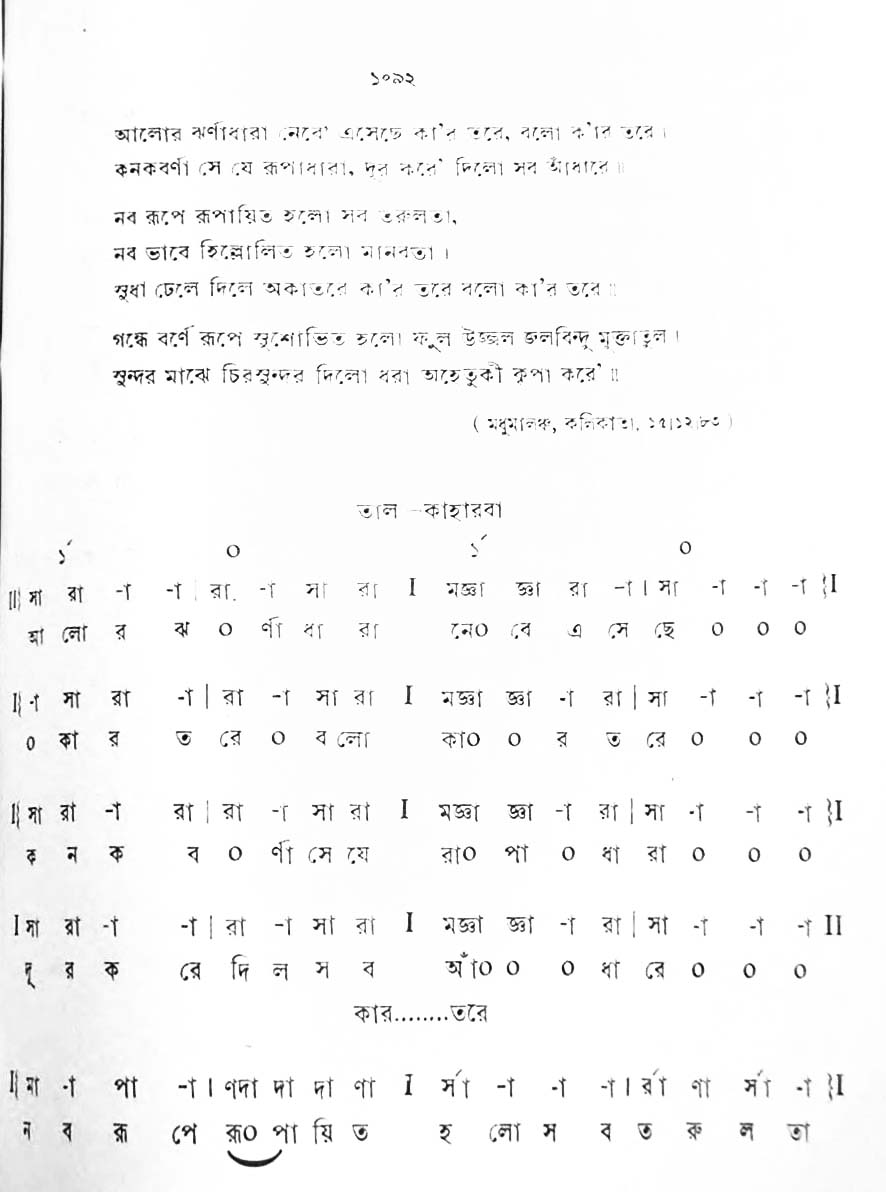 ১০৯২
আলোর ঝর্ণাধারা নেবে' এসেছে কা'র তরে, বলো কা'র তরে।
কনকবর্ণা সে যে রূপাধারা, দূর করে' দিলো সব আঁধারে॥
নব রূপে রূপায়িত হলো সব তরুলতা,
নব ভাবে হিল্লোলিত হলো মানবতা।
সুধা ঢেলে দিলে অকাতরে কা'র তরে বলো কা'র তরে॥
গন্ধে বর্ণে রূপে সুশোভিত হলো ফুল উজ্জল জলবিন্দু মুক্তাতুল।
সুন্দর মাঝে চিরসুন্দর দিলো ধরা অহেতুকী কৃপা করে'॥
( মধুমালঞ্চ, কলিকাতা, ১৫।১২।৮৩ )
তাল -কাহারবা
১´ ০ ১´ ০
II{ সা রা -া -া | রা -া সা রা I মজ্ঞা জ্ঞা রা -া | সা -া -া -া }I
আ লো র ঝ ০ র্ণা ধা রা নে০ বে এ সে ছে ০ ০ ০
I{ -া সা রা -া | রা -া সা রা I মজ্ঞা জ্ঞা -া রা | সা -া -া -া }I
০ কা র ত রে ০ ব লো কা০ ০ র ত রে ০ ০ ০
I{ সা রা -া রা | রা -া সা রা I মজ্ঞা জ্ঞা -া রা | সা -া -া -া }I
ক ন ক ব ০ র্ণা সে যে রা০ পা ০ ধা রা ০ ০ ০
I সা রা -া -া | রা -া সা রা I মজ্ঞা জ্ঞা -া রা | সা -া -া -া II
দূ র ক রে দি ল স ব আঁ০ ০ ০ ধা রে ০ ০ ০
কার........তরে
I{ মা -া পা -া | ণদা দা দা ণা I র্সা -া -া -া | র্রা ণা র্সা -া }I
ন ব রূ পে রূ০ পা য়ি ত হ লো স ব ত রু ল তা